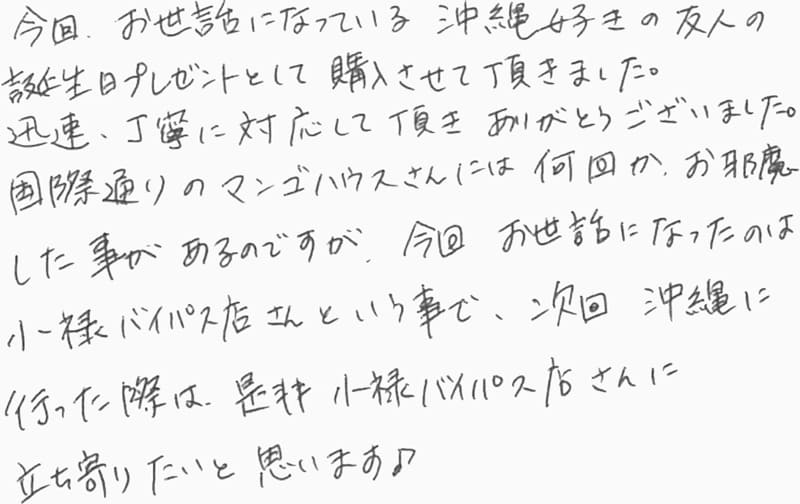 今回、お世話になっている 沖縄好きの友人の
誕生日プレゼントとして購入させて頂きました。
迅速、丁寧に対応して頂きありがとうございました。
国際通りのマンゴハウスさんには何回か、お邪魔
した事があるのですが、今回 お世話になったのは
小禄バイパス店さんという事で、次回 沖縄に
行った際は、是非 小禄バイパス店さんに
立ち寄りたいと思います♪